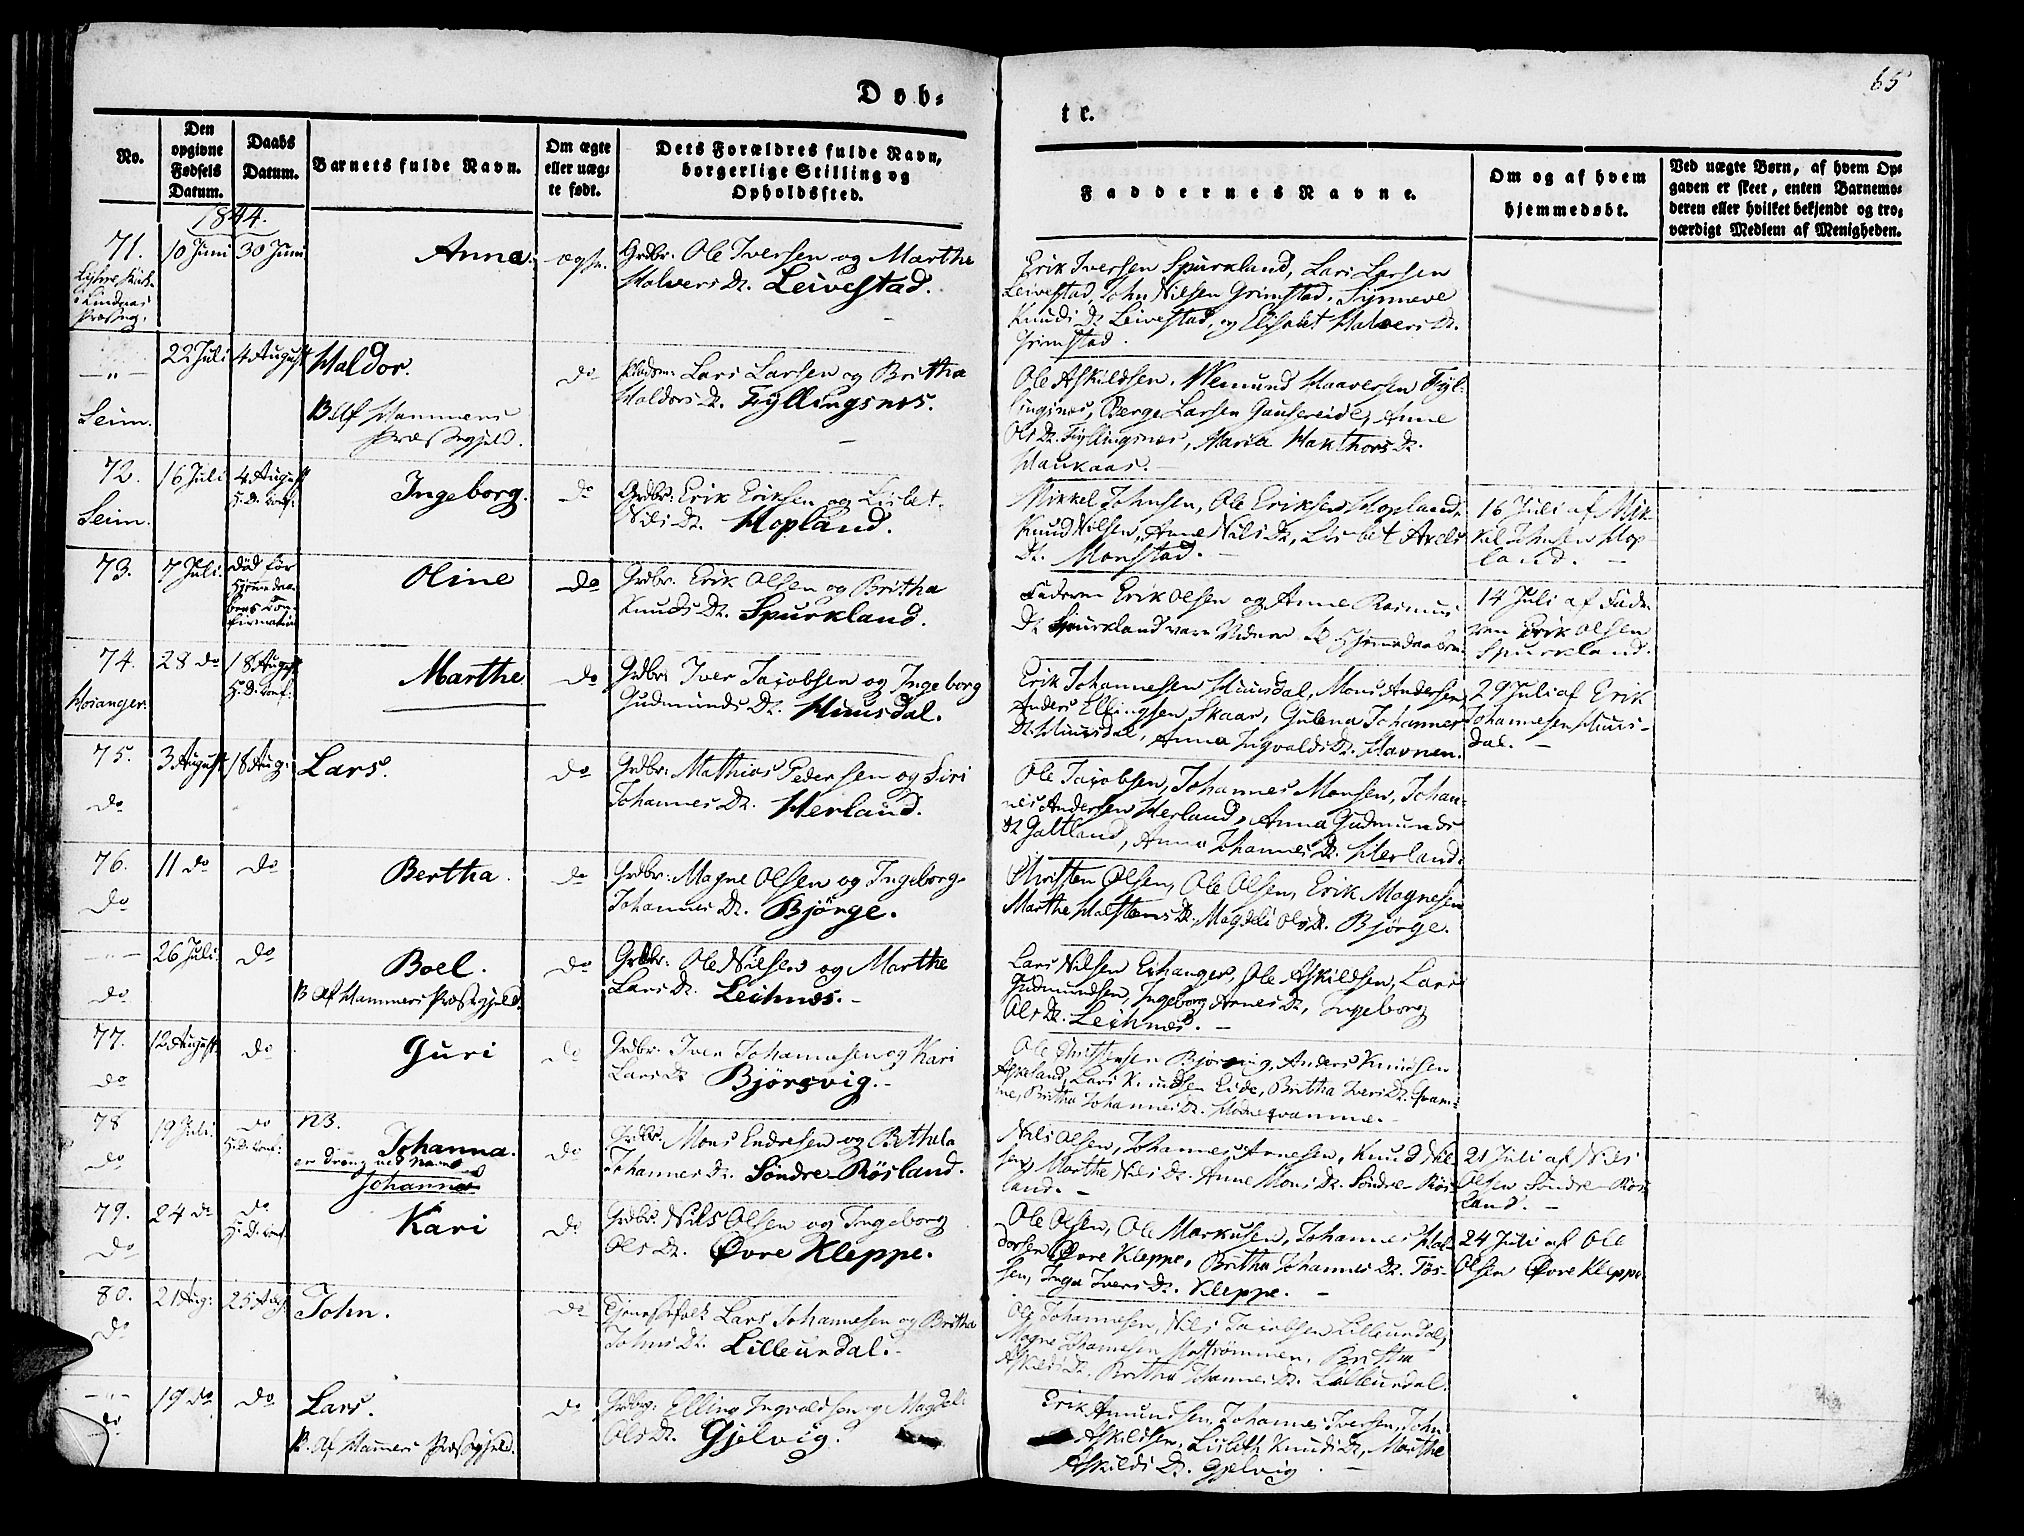 Døb-
te.
65
No.
Den
opgivne
Fødsels
Datum.
Daabs
Datum.
Barnets fulde Navn.
Om ægte
eller uæg-
te født.
Dets Forældres fulde Navn,
borgerlige Stilling og
Opholdssted.
Faddernes Navne.
Om og af hvem
hjemmedøbt.
Ved uægte Børn, af hvem Op-
gaven er skeet, enten Barnemo-
deren eller hvilket bekjendt og tro-
værdigt Medlem af Menigheden.
1844.
71. 10 Juni 30 Juni Anna.
Lindaas
Præstegj.
Grdbr. Ole Iversen og Marthe
Halvers Dt. Leivestad.
Erik Iversen Spurkland, Lars Larsen
Leivestad, John Nilsen Grimstad, Synneve
Knuds Dt. Leivestad, og Elisabet Halvers Dt.
Grimstad.
-"- 22 Juli 4 August Haldor. do
Seim. NB Af Hammers
Præstegjeld.
Lars Larsen og Britha
Haldors Dt. Fyllingsnæs.
Ole Askildsen, Wemund Haaversen Fyl-
lingsnæs, Børge Larsen Gausereide, Anne
Ols Dt. Fyllingsnæs, Maria Hakthors Dt.
Haukaas.
72. 16 Juli 4 August Ingeborg. do
Seim. H. D. Conf.
Grdbr. Erik Eriksen og Lisbet
Nils Dt. Hopland.
Mikkel Johnsen, Ole Eriksen Hopland,
Knud Nilsen, Anne Nils Dt., Lisbet Axels
Dt. Monstad.
16 Juli af Mik-
kel Johnsen Hop-
land.
73. 7 Juli Død før Oline do
Hjemmedaa-
bens Con-
firmation
Grdbr. Erik Olsen og Britha
Knuds Dt. Spurkland.
Faderen Erik Olsen og Anne Rasmus
Dt. Spurkland vare Vidner Hjemmedaaben.
14 Juli af Fade-
ren Erik Olsen
Spurkland.
74. 28 do 18 August Marthe do
Hosanger. H. D. Conf.
Grdbr. Iver Jacobsen og Ingeborg
Gudmunds Dt. Huusdal.
Erik Johannesen Huusdal, Mons Andersen,
Anders Ellingsen Skaar, Gulena Johannes
Dt. Huusdal, Anna Ingvalds Dt. Havnen.
29 Juli af Erik
Johannesen Huus-
dal.
75. 3 August 18 Aug. Lars. do
do
Grdbr. Mathias Pedersen og Siri
Johannes Dt. Herland.
Ole Jacobsen, Johannes Monsen, Johan-
nes Andersen Herland, Anna Gudmunds
Dt. Galtland, Anna Johannes Dt. Herland.
76. 11 do do Bertha. do
do
Grdbr. Magne Olsen og Ingeborg
Johannes Dt. Bjørge.
Christen Olsen, Ole Olsen, Erik Magnesen
Marthe Halstens Dt., Magdeli Ols Dt. Bjørge.
-"- 26 Juli do Boel. do
do NB Af Hammers Præstegjeld.
Grdbr. Ole Nilsen og Marthe
Lars Dt. Leihnæs.
Lars Nilsen Erhanger, Ole Askildsen, Lars
Gudmundsen, Ingeborg Arnes Dt., Ingeborg
Ols Dt. Leihnæs.
77. 12 August do Guri do
do
Grdbr. Iver Johannesen og Kari
Lars Dt. Bjørsvig.
Ole Christensen Bjørsvig, Anders Knudsen
Askeland, Lars Knudsen Eide, Britha Ivers Dt. Qvam-
me, Britha Johannes Dt. qvamme.
78 19 Juli. do NB. Johanna. do
do H. D. Conf. er dreng ved Navn
Johannes
Grdbr. Mons Endresen og Brithela
Johannes Dt. Søndre-Røsland.
Nils Olsen, Johannes Arnesen, Knud Nil-
sen, Marthe Nils Dt. Anne Mons Dt. Søndre-Røs-
land.
21 Juli af Nils
Olsen Søndre-Røs-
land.
79. 24 do do Kari do
do H. D. Conf.
Grdbr. Nils Olsen og Ingeborg
Ols Dt. Øvre Kleppe.
Ole Olsen, Ole Markusen, Johannes Hal-
dorsen Øvre Kleppe, Britha Johannes Dt. Tøs-
sen, Inga Ivers Dt. Kleppe.
24 Juli af Ole
Olsen Øvre Kleppe.
80. 21 Aug. 25 Aug. John. do
do
Tjenestefolk Lars Johannesen og Britha
Johns Dt. Lilleurdal.
Ole Johannesen, Nils Jacobsen Lilleurdal,
Magne Johannesen Mostrømmen, Britha
Askilds Dt. Britha Johannes Dt. Lilleurdal.
-"- 19 do do Lars. do
do NB. Af Hammers Præstegjeld.
Grdbr. Elling Ingvaldsen og Magdeli
Ols Dt. Gjelvig.
Erik Amundsen, Johannes Iversen, John
Askildsen, Lisbeth Knuds Dt., Marthe
Askilds Dt. Gjelvig.